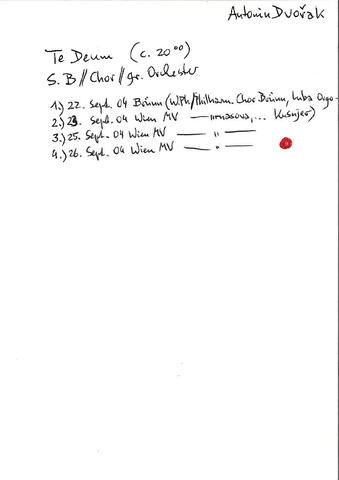 Antonin Dvořak
Te Deum (c. 20⁰⁰)
S. B // Chor // gr. Orchester
1.) 22. Sept. 04 Brünn (WPh/Philharm. Chor Brünn, Luba Orgo-
2.) 23. Sept. 04 Wien MV — " nasova, ... Kusnjer)
3.) 25. Sept. 04 Wien MV — " —
4.) 26. Sept. 04 Wien MV — " —